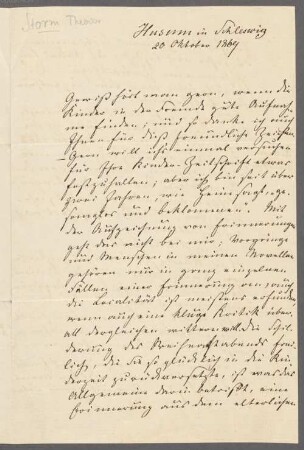 Storm Theodor
Husum in Schleswig
20 Oktober 1869
Gewiß sieht man gern, wenn die
Kinder in der Fremde gute Aufnah-
me finden; und so danke ich auch
Ihnen für dieß freundliche Zeichen
– Gern will ich einmal versuchen
für Ihre Kinder-Zeitschrift etwas
festzuhalten, aber ich bin seit über
zwei Jahren, wie
und beklommen. Mit
der Aufzeichnung von Erinnerungen
geht das nicht bei mir; Vorgänge
und Menschen in meinen Novellen
gehören nur in ganz einzelnen
Fällen einer Erinnerung an; auch
die Localität ist meistens erfunden,
wenn auch eine kluge Kritik über-
all dergleichen wittern will. die Schil-
derung des abends frei-
lich, die Sie so glücklich in die Kin-
derzeit zurückversetzte, ist was das
Allgemeine darin betrifft, eine
Erinnerung aus dem elterlichen